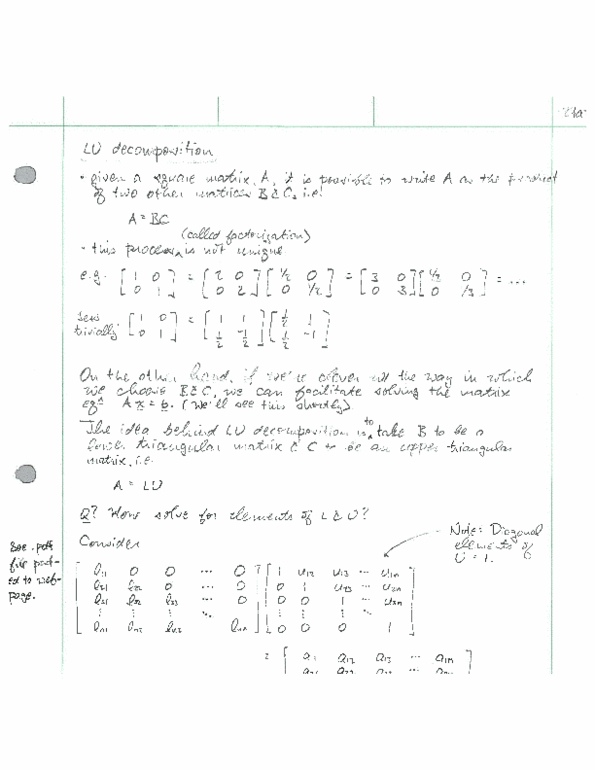 LU decomposition
• given a square matrix, A, it is possible to write A as the product
of two other matrices B & C, i.e.
A = BC
(called factorization)
- this process is not unique
e.g. [1 0; 0 1] = [2 0; 0 2] [1/2 0; 0 1/2] = [3 0; 0 3] [1/3 0; 0 1/3] = ...
less
trivially [1 0; 0 1] = [1 1; 1/2 -1/2] [1/2 1; 1/2 -1]
On the other hand, if we're clever in the way in which
we choose B & C, we can facilitate solving the matrix
eqn A x = b. (We'll see this shortly).
The idea behind LU decomposition is to take B to be a
lower triangular matrix & C to be an upper triangular
matrix, i.e.
A = LU
Q? How solve for elements of L & U?
Note: Diagonal
elements of
U = 1.
Consider
See .pdf
file post-
ed to web-
page.
[l11 0 0 ... 0] [1 u12 u13 ... u1n]
[l21 l22 0 ... 0] [0 1 u23 ... u2n]
[l31 l32 l33 ... 0] [0 0 1 ... u3n]
[⋮ ⋮ ⋮ ⋱] [⋮ ⋮ ⋮ ⋱]
[ln1 ln2 ln3 lnn] [0 0 0 1]
= [a11 a12 a13 ... a1n]
a21 a22 a23 ... a2n